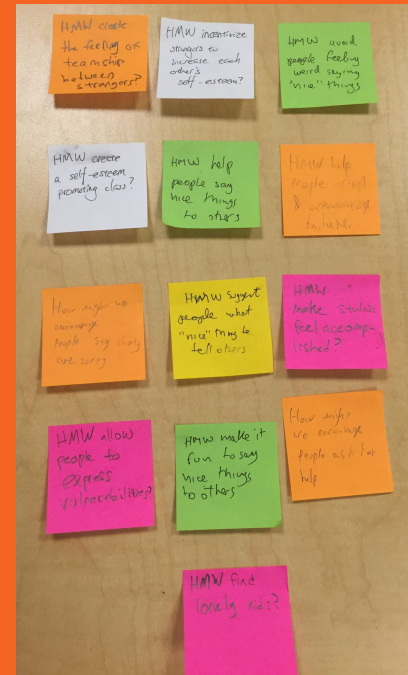 HMW create
the feeling of
teamship
between
strangers?
HMW incentivize
strangers to
increase each
other's
self-esteem?
HMW avoid
people feeling
weird saying
"nice" things
HMW create
a self-esteem
promoting class?
HMW help
people say
nice things
to others
HMW help
people
& acknowledge
failures
How might we
encourage
people say they
are sorry
HMW suggest
people what
"nice" thing to
tell others
HMW
make students
feel accomp
lished?
HMW allow
people to
express
vulnerabilities?
HMW make it
fun to say
nice things
to others
How might
we encourage
people ask for
help
HMW find
lonely kids?